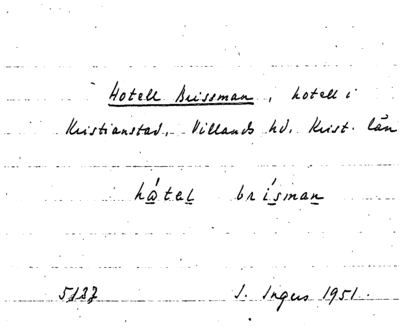 Hotell Brissman, hotell i
Kristianstad, Villands hd. Krist. län
hǻtel brísman
5137 I. Ingers 1951.